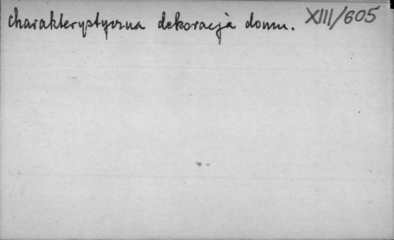 charakterystyczna dekoracja domu. XIII/605